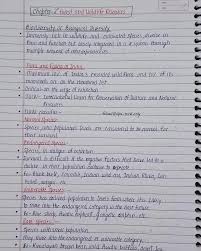 Chapter-2 Forest and Wildlife Resources
Biodiversity or Biological Diversity
Immensely rich in wildlife and cultivated species, diverse in
form and function but closely integrated in a system through
multiple network of interdependencies
Flora and Fauna in India
of India's recorded wild flora and of its
mammals are on the threatened list
Critical → on the verge of extinction
IUCN → International Union for Conservation of Nature and Natural
Resources
Normal Species
Species whose population levels are considered to be normal for
their survival
Endangered Species
Species in danger of extinction
Survival is difficult if the negative factors that have led to a
decline in their population continue to operate
Ex- Black buck, crocodile, Indian wild ass, Indian Rhino, lion
tailed macaque, etc
Vulnerable Species
Species has declined population to levels from where it is likely
to move into the endangered category in the near future
Ex- Blue sheep, Asiatic elephant, Gangetic dolphin, etc
Rare Species
Species with small population
They move into the endangered or vulnerable category
Ex- Himalayan brown bear, wild Asiatic buffalo, desert fox